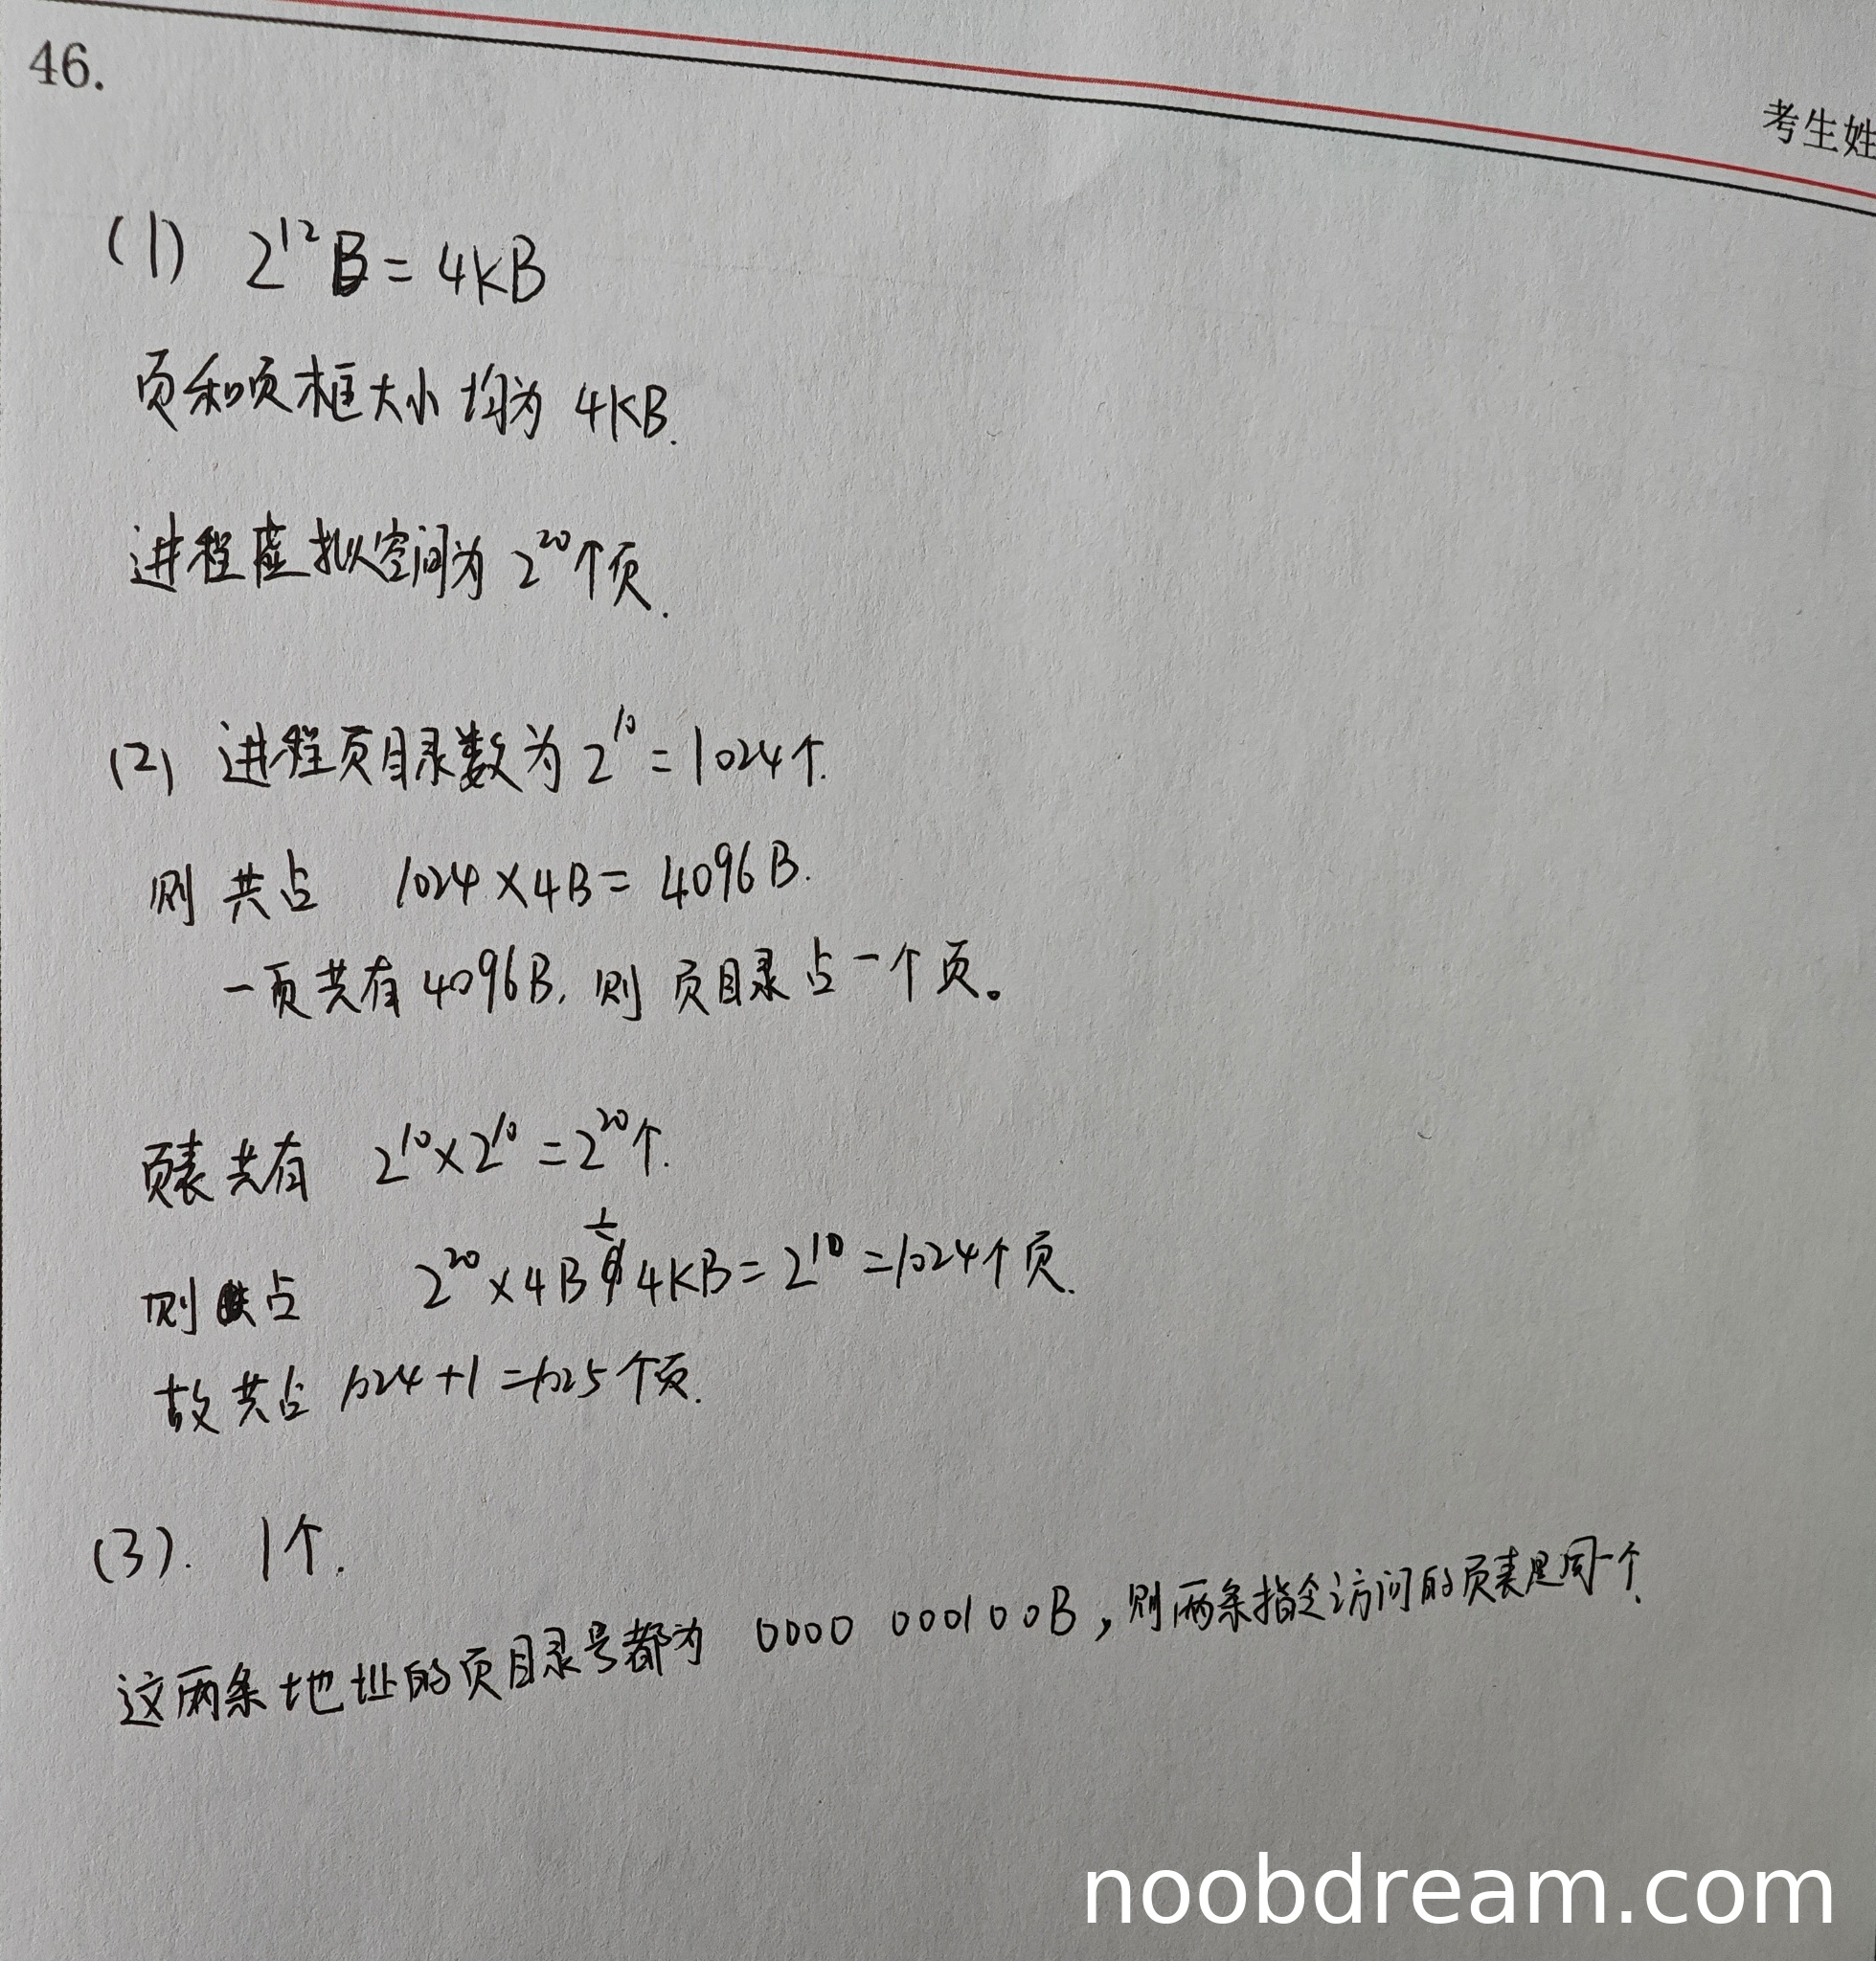 46.
考生姓
(1) 2¹²B = 4KB
页和页框大小均为 4KB.
进程虚拟空间为 2²⁰个页.
(2) 进程页目录数为 2¹⁰ = 1024个.
则共占 1024 × 4B = 4096B.
一页共有 4096B, 则 页目录占一个页。
页表共有 2¹⁰×2¹⁰ = 2²⁰个.
则占 2²⁰ × 4B ÷ 4KB = 2¹⁰ = 1024个页.
故共占 1024 + 1 = 1025个页.
(3). 1个.
这两条地址的页目录号都为 0000 000100B, 则两条指令访问的页表是同一个.
noobdream.com